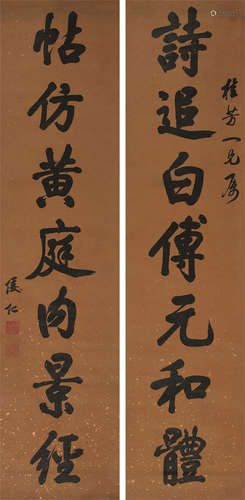 詩追白傅元和體
桂芳一兄属
帖仿黄庭内景經